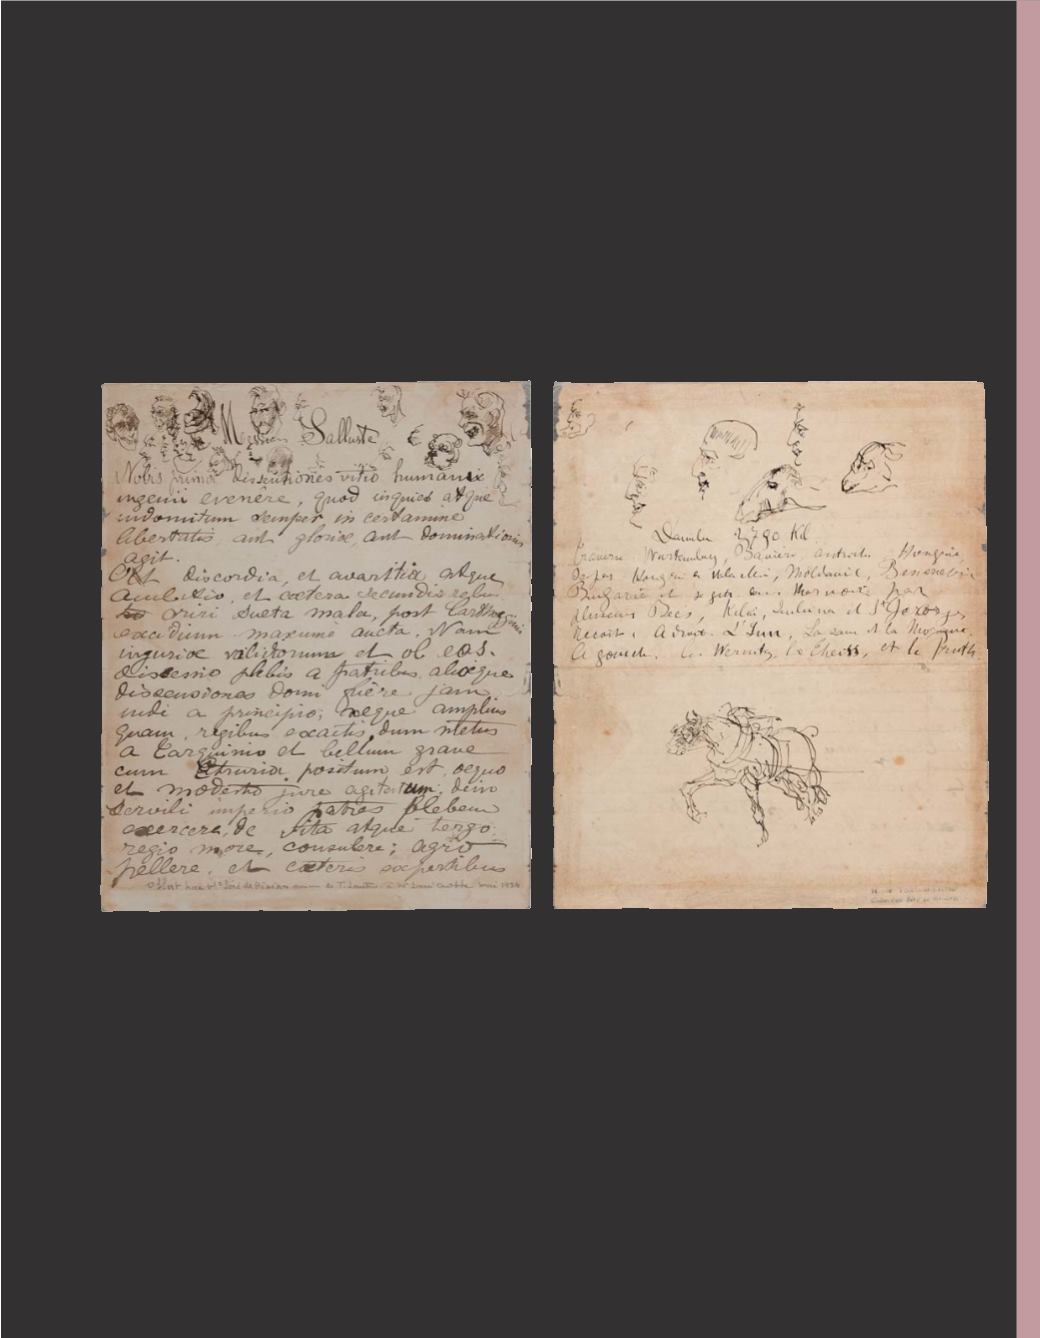 Salluste
Nobis primae dissentiones vitio humani
ingenii evenere, quod inquies atque
indomitum semper in certamine
libertatis, aut gloriae, aut dominationis
agit.
discordia, et avaritia atque
ambitio, et coetera secundis rebus
oriri sueta mala, post Carthaginis
excidium maxume aucta. Nam
injuriae validiorum et ob eas
discessio plebis a patribus aliaeque
dissensiones domi fuere jam
inde a principio; neque amplius
quam, regibus exactis, dum metus
a Tarquinio et bellum grave
cum Etruria positum est, aequo
et modesto jure agitatum; dein
servili imperio patres plebem
exercere, de vita atque tergo
regio more, consulere; agro
pellere, et coeteris expertibus
mai 1924
Danube 2790 Kil.
Traverse Wurtemberg, Bavière, Autriche Hongrie,
Hongrie Moldavie, Bessarabie
Bulgarie et se jette mer noire par
plusieurs Kilia, Sulina et St Georges,
Reçoit: A droite L'Inn, La save et la
A gauche. le Theiss, et le Pruth.